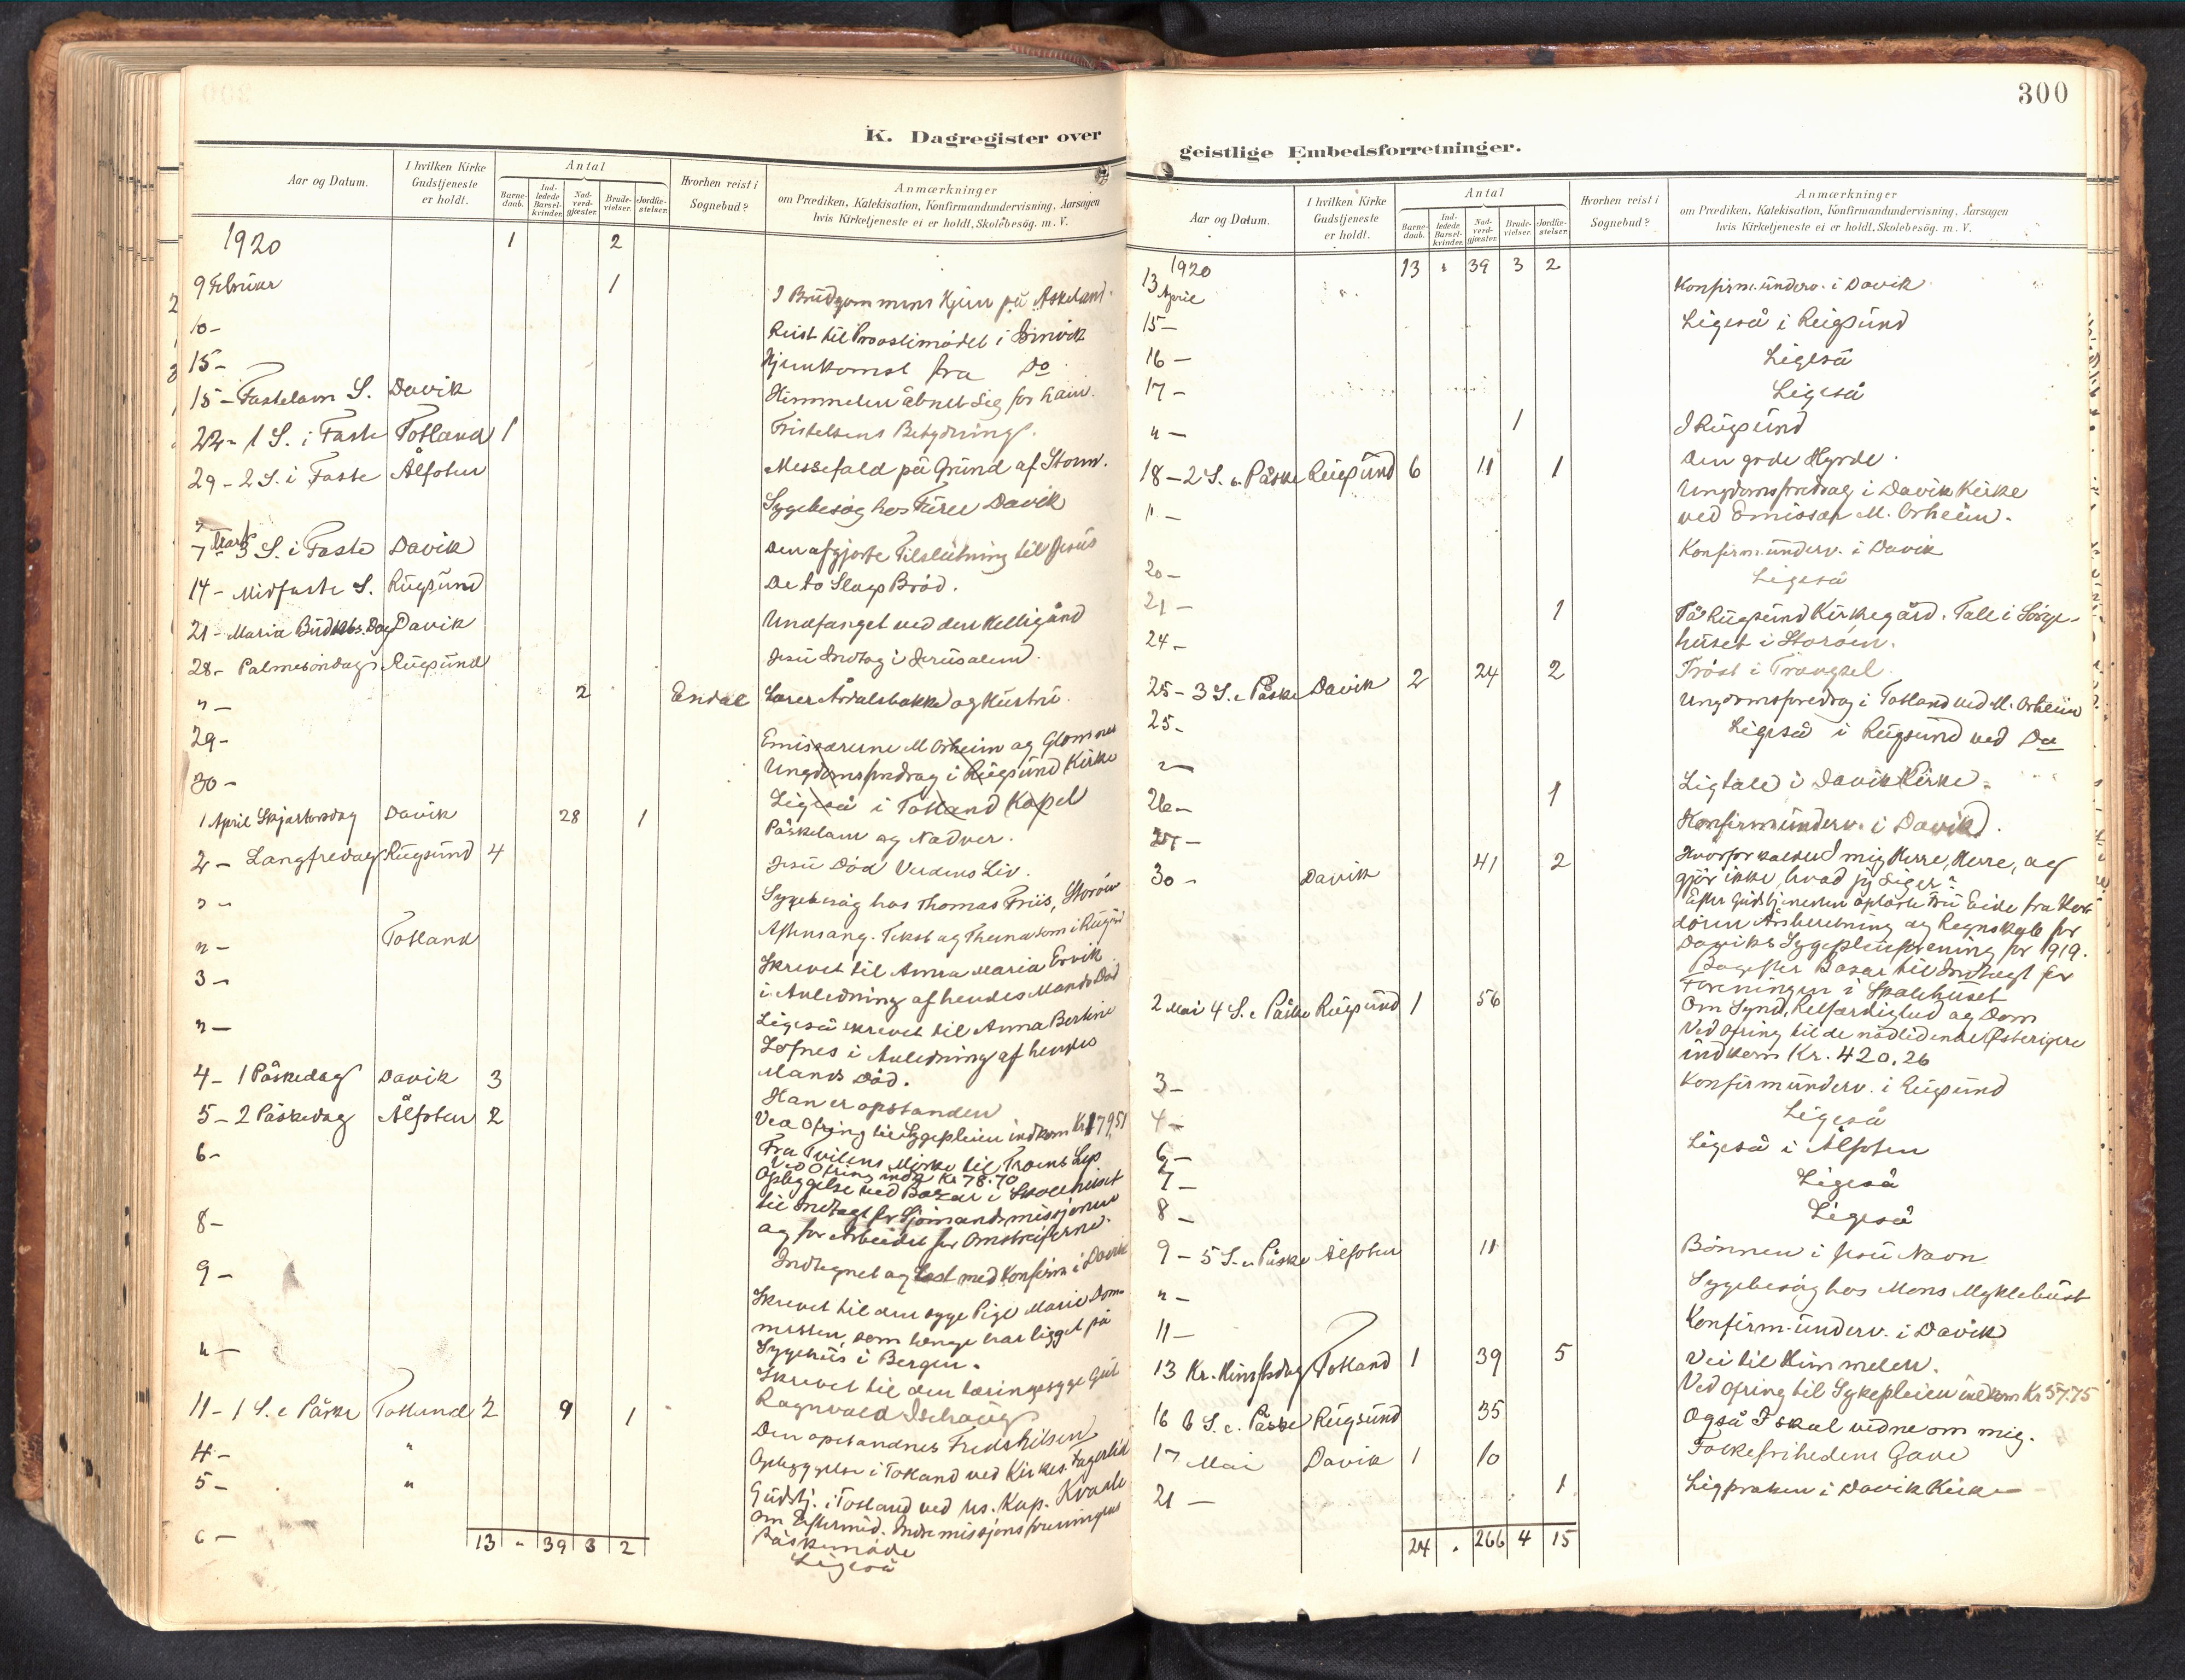 300
K. Dagregister over
geistlige Embedsforretninger.
Aar og Datum.
I hvilken Kirke Gudstjeneste er holdt.
Antal
Barnedaab.
Indledede Barselkvinder.
Nadverdgjæster.
Brudevielser.
Jordfæstelser.
Hvorhen reist i Sognebud?
Anmærkninger
om Prædiken, Katekisation, Konfirmandundervisning, Aarsagen
hvis Kirketjeneste ei er holdt, Skolebesøg. m. V.
1920 1 2
9 Februar 1 I Brudgommens Hjem på Askeland.
10 - Reist til Proostimödet i
15 - Hjemkomst fra Do
15 - Fastelavn S. Davik Himmelen åbnet Sig for ham.
22 - 1 S. i Faste Totland 1 Fristelsens Betydning.
29 - 2 S. i Faste Ålfoten Messefald på Grund af Storm.
Sygebesög hos Davik
7 Mark 3 S. i Faste Davik Den afgjorte Tilslutning til Jesus
14 - Midfaste S. Rugsund De to Slags Bröd.
21 - Maria Budskbs. Dag Davik Undfanget ved den Helligånd
28 - Palmesöndag Rugsund Jesu Indtog i Jerusalem.
" - 2 Endal Lærer Årdalsbakke og Hustru.
29 - Emissærerne M Orheim og Glomnes
Ungdomsforedrag i Rugsund Kirke
30 - Ligeså i Totland Kapel
1 April Skjærtorsdag Davik 28 1 Påskelam og Nadver.
2 - Langfredag Rugsund 4 Jesu Död Verdens Liv.
" - Sygebesög hos Thomas Friis, Storöen
" - Totland Aftensang. Tekst og Thema som i Rugsund
3 - Skrevet til Anna Maria Ervik
i Anledning af hendes Mands Död
" - Ligeså skrevet til Anna Bertine
Lofnes i Anledning af hendes
Mands Död.
4 - 1 Påskedag Davik 3 Han er opstanden
Ved Ofring til Sygepleien indkom Kr 179,51
5 - 2 Påskedag Ålfoten 2 Fra Tvilens Mörke til Troens Lys
Ved Ofring indk Kr 78.70
6 - Opbyggelse ved Bazar i Skolehuset
til Indtægt for Sjömandsmissjonen
og for Arbeidet for Omstreiferne.
8 - Indtegnet og læst med Konfirm i Davik
9 - Skrevet til den syge Pige Marie Dom-
mersten, som længe har ligget på
Sygehus i Bergen.
" - Skrevet til den tæringssyge Gut
Ragnvald Ischoug
11 - 1 S. e Påske Totland 2 9 1 Den opstandnes Fredshilsen
4 - " Opbyggelse i Totland ved Kirkes. Fagerlid
5 - " Gudstj. i Totland ved res. Kap. Kvaale
om Eftermid. Indremissjonsforeningens
Påskemöde
6 - Ligeså
13 - 39 3 2
1920 13 " 39 3 2
13 April " Konfirm. underv. i Davik
15 - Ligeså i Rugsund
16 - Ligeså
17 - Ligeså
" - 1 I Rugsund
18 - 2 S. e. Påske Rugsund 6 11 1 Den gode Hyrde.
" - Ungdomsforedrag i Davik Kirke
ved Emissær M. Orheim.
20 - Konfirm. underv. i Davik
21 - Ligeså
24 - 1 På Rugsund Kirkegård. Tale i Sörge-
huset i Storöen.
25 - 3 S. e Påske Davik 2 24 2 Tröst i Trængsel.
25 - Ungdomsforedrag i Totland ved M. Orheim
" - Ligeså i Rugsund ved Do
26 - 1 Ligtale i Davik Kirke.
27 - Konfirmunderv. i Davik.
30 - Davik 41 2 Hvorfor kalder I mig Herre, Herre, og
gjör ikke, hvad jeg siger?
Efter Gudstjenesten oplæste Fru Eide fra Kor-
dören Årsberetning og Regnskab for
Daviks Sygepleieforening for 1919.
Bagefter Basar til Indtægt for
Foreningen i Skolehuset
2 Mai 4 S. e Påske Rugsund 1 56 Om Synd, Retfærdighed og Dom
Ved ofring til de nödlidende Østerigere
indkom Kr. 420.26
3 - Konfirmunderv. i Rugsund
4 - Ligeså
6 - Ligeså i Ålfoten
7 - Ligeså
8 - Ligeså
9 - 5 S. e Påske Ålfoten 11 Bönnen i Jesu Navn
" - Sygebesög hos Mons Myklebust
11 - Konfirm. underv. i Davik
13 Kr. Himflsdag Totland 1 39 5 Vei til Himmelen.
Ved Ofring til Sykepleien indkom Kr 57.75
16 6 S. e. Påske Rugsund 35 Også I skal vidne om mig.
17 Mai Davik 1 10 Folkefrihedens Gave
21 - 1 Ligpræken i Davik Kirke
24 . 266 4 15